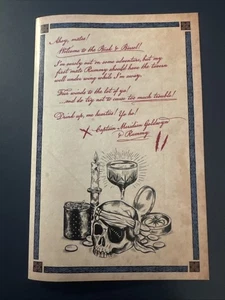 Ahoy, matey!
Welcome to the Beak & Barrel!
I'm surely out on some adventure, but my
first mate Rummy should have the tavern
well under wing while I'm away.
Fair winds to the lot of ye!
...and do try not to cause too much trouble!
Drink up, me hearties! Yo ho!
X Captain Marabina Goldwyn
& Rummy